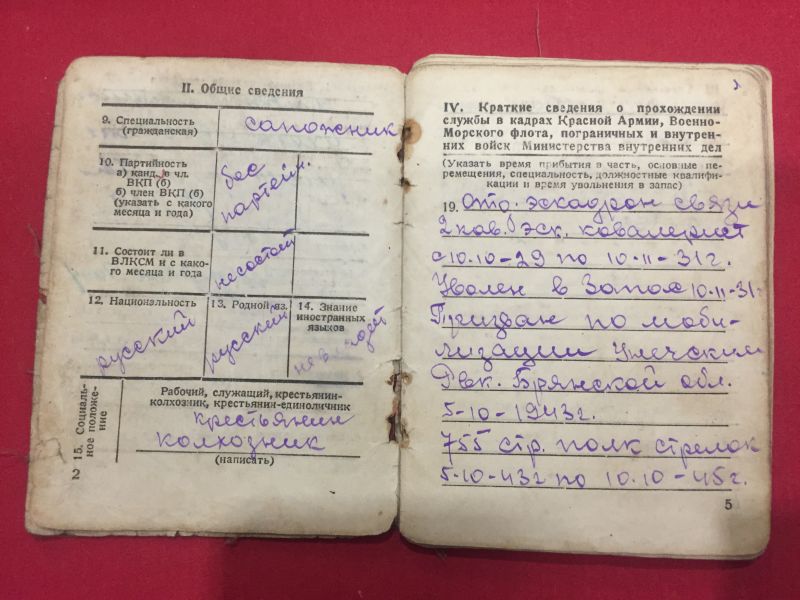 II. Общие сведения
9. Специальность
(гражданская)
сапожник
10. Партийность
а) канд. в чл.
ВКП (б)
б) член ВКП (б)
(указать с какого
месяца и года)
бес
партейн.
11. Состоит ли в
ВЛКСМ и с како-
го месяца и года
несостоит
12. Национальность
русский
13. Родной яз.
русский
14. Знание
иностранных
языков
15. Социаль-
ное положе-
ние
Рабочий, служащий, крестьянин-
колхозник, крестьянин-единоличник
крестьянин
колхозник
(написать)
2
IV. Краткие сведения о прохождении
службы в кадрах Красной Армии, Военно-
Морского флота, пограничных и внутрен-
них войск Министерства внутренних дел
(Указать время прибытия в часть, основные пе-
ремещения, специальность, должностные квалифи-
кации и время увольнения в запас)
19. Отд. эскадрон связи
2 кав. эск. ковалерист
с 10.10-29 по 10-11-31г.
Уволен в Запас 10.11-31г
Призван по моби-
лизации Унечским
Рвк. Брянской обл.
5-10-1943г.
755 стр. полк стрелок
5-10-43г по 10.10-45г.
5